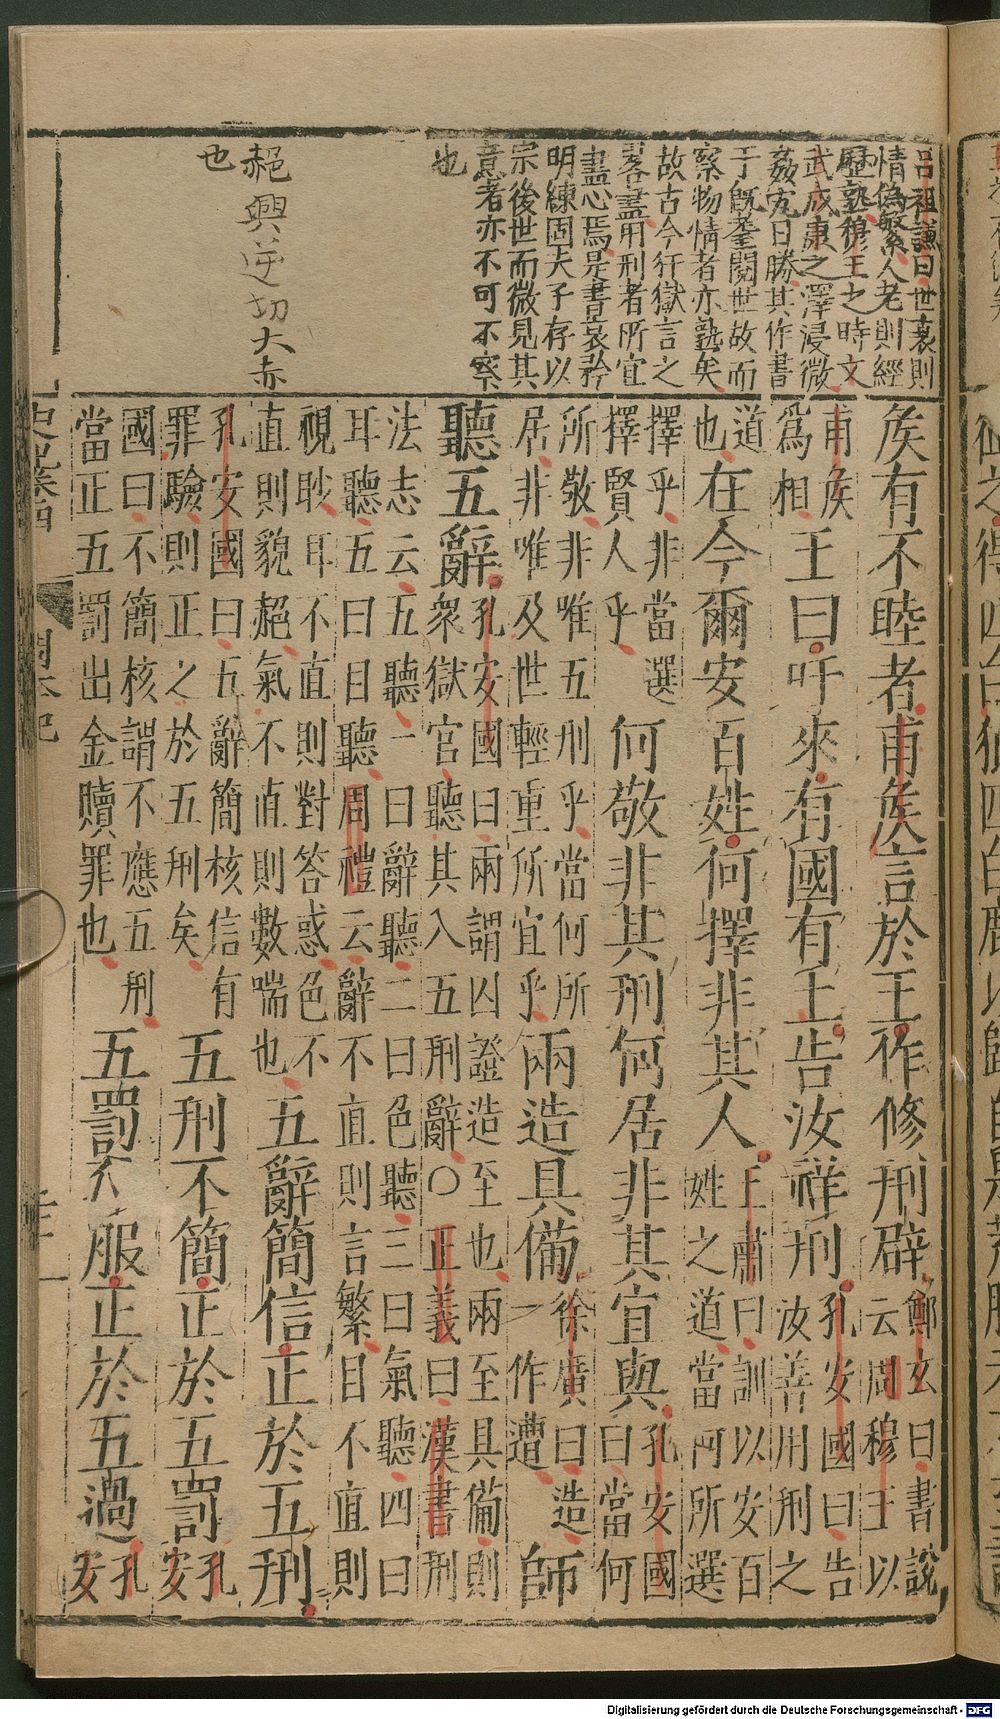 呂祖謙曰世衰則
情偽繁人老則經
歷熟穆王之時文
武成康之澤浸微
姦宄日勝其作書
于既耄閱世故而
察物情者亦熟矣
故古今犴獄言之
畧盡用刑者所宜
盡心焉是書哀矜
明練固夫子存以
宗後世而微見其
意者亦不可不察
也
赩興逆切大赤
也
矦有不睦者甫矦言於王作修刑辟鄭玄曰書說云周穆王以
甫矦為相王曰吁來有國有土告汝祥刑孔安國曰告汝善用刑之
道也在今爾安百姓何擇非其人王肅曰訓以安百姓之道當何所選
擇乎非當選擇賢人乎何敬非其刑何居非其宜與孔安國曰當何
所敬非唯五刑乎當何所居非唯及世輕重所宜乎兩造具備徐廣曰造一作遭師
聽五辭孔安國曰兩謂囚證造至也兩至具備則衆獄官聽其入五刑辭○正義曰漢書刑
法志云五聽一曰辭聽二曰色聽三曰氣聽四曰耳聽五曰目聽周禮云辭不直則言繁目不直則
視眊耳不直則對答惑色不直則貌赩氣不直則數喘也五辭簡信正於五刑
孔安國曰五辭簡核信有罪驗則正之於五刑矣五刑不簡正於五罰孔安
國曰不簡核謂不應五刑當正五罰出金贖罪也五罰不服正於五過孔安
史記卷四 周本紀
Digitalisierung gefördert durch die Deutsche Forschungsgemeinschaft - DFG